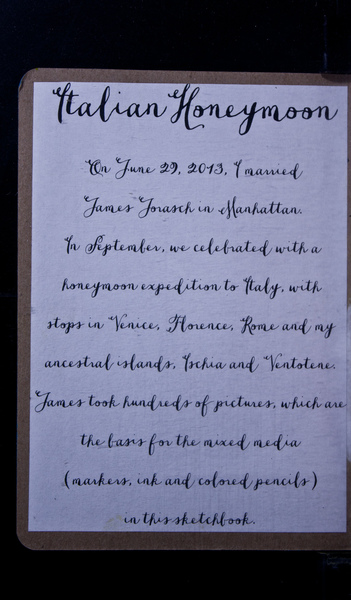 Italian Honeymoon
On June 29, 2013, I married
James Jorasch in Manhattan.
In September, we celebrated with a
honeymoon expedition to Italy, with
stops in Venice, Florence, Rome and my
ancestral islands, Ischia and Ventotene.
James took hundreds of pictures, which are
the basis for the mixed media
(markers, ink and colored pencils)
in this sketchbook.